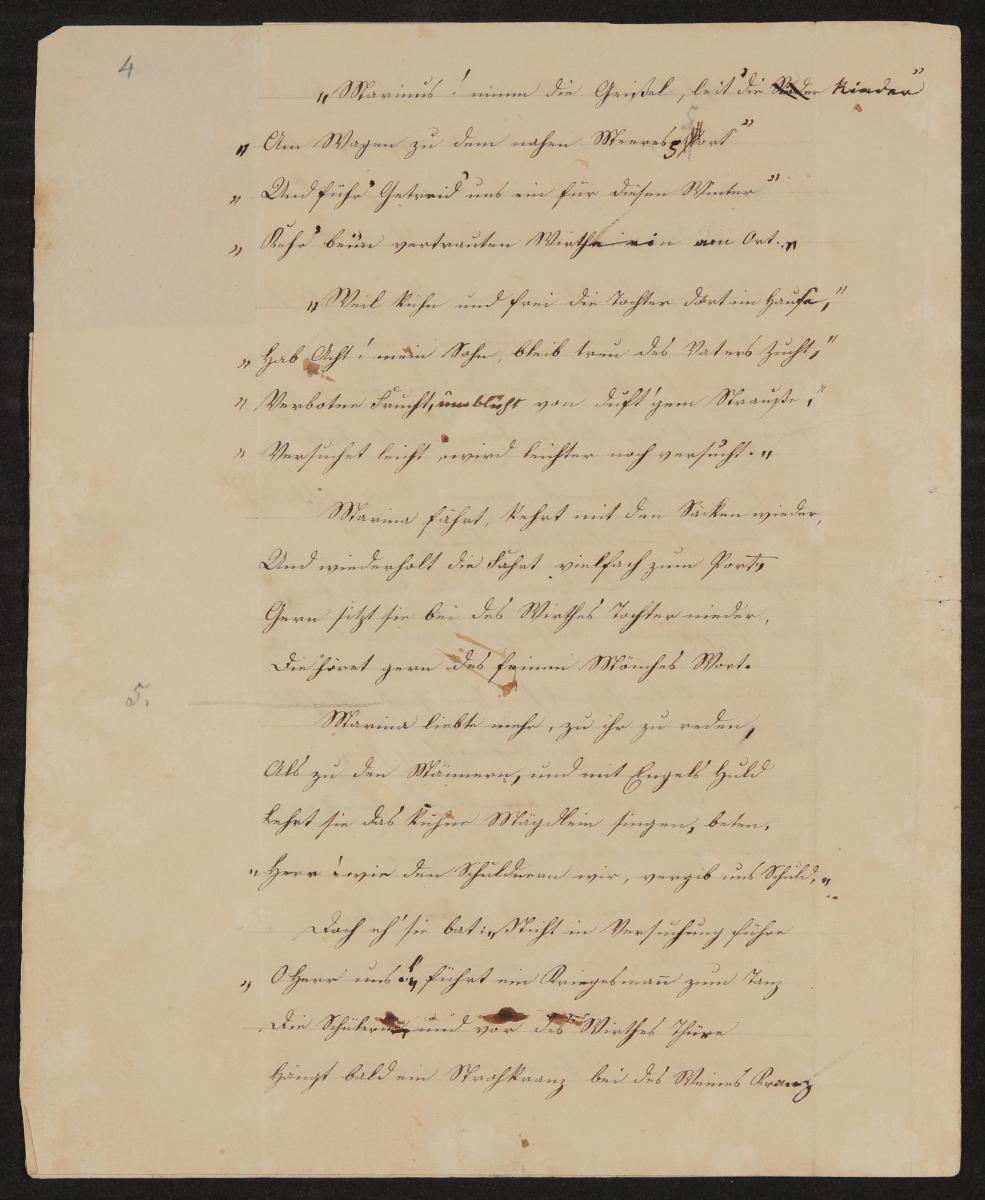 4
„Marinus! nimm die Geißel, leit' die Rinder"
„Am Wagen zu dem nahen Meeresport"
„Und führ' Getreid' uns ein für diesen Winter"
„Kehr' beim vertrauten Wirthe ein am Ort."
„Weil kühn und frei die Tochter dort im Hause,"
„Hab Acht! mein Sohn, bleib treu des Vaters Zucht,"
„Verbotne Frucht, umblüht von duft'gem Strauße,"
„Versuchet leicht, wird leichter noch versucht."
Marina fährt, kehrt mit den Säcken wieder,
Und wiederholt die Fahrt vielfach zum Port,
Gern sitzt sie bei des Wirthes Tochter nieder,
Die höret gern des feinen Mönches Wort.
5.
Marina liebte mehr, zu ihr zu reden,
Als zu den Männern, und mit Engels Huld
Lehrt sie das kühne Mägdlein singen, beten,
„Herr! wie den Schuldnern wir, vergib uns Schuld,"
Doch eh' sie bat: „Nicht in Versuchung führe
„O Herr uns!" führt ein Kriegesmañ zum Tanz
Die Schülerin, und vor des Wirthes Thüre
Hängt bald ein Strohkranz bei des Weines Kranz